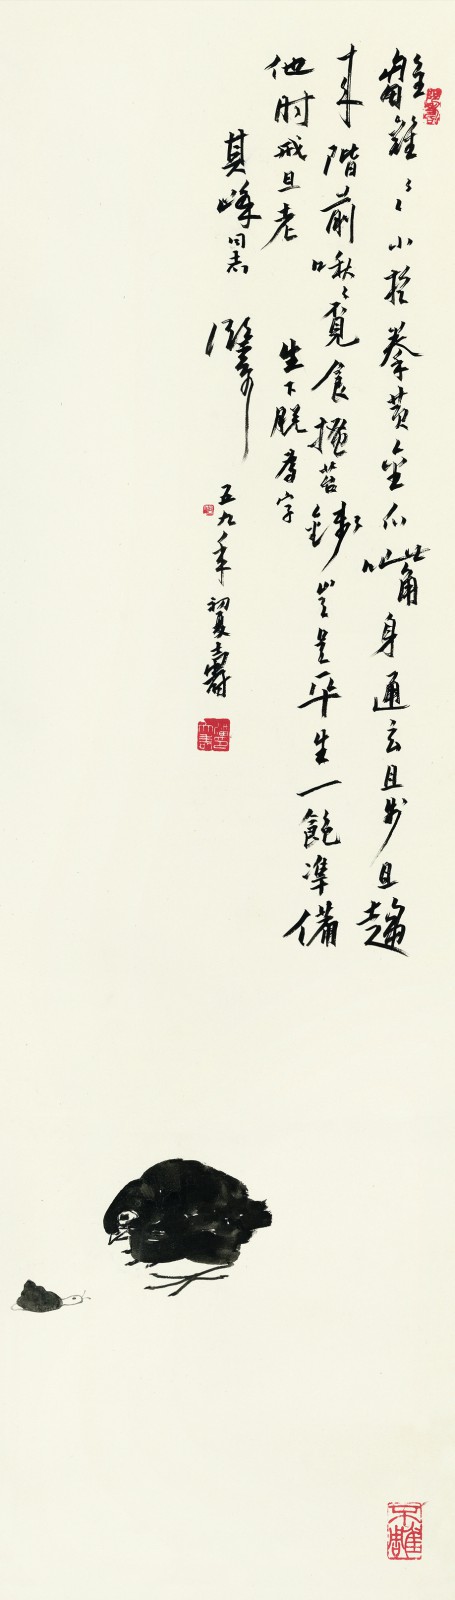 雛雞〻〻小於拳黄金爪嘴身通玄且步且趨
来階前啾〻覓食苔錢豈是平生一飽準備
他時戒旦老
生下脱為字
其峰同志
五九年初夏壽
不雕